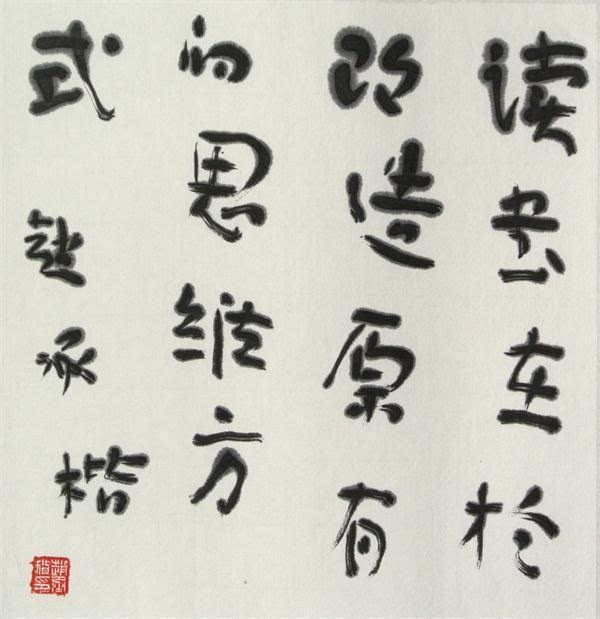 读书在於
改造原有
的思维方
式 赵承楷